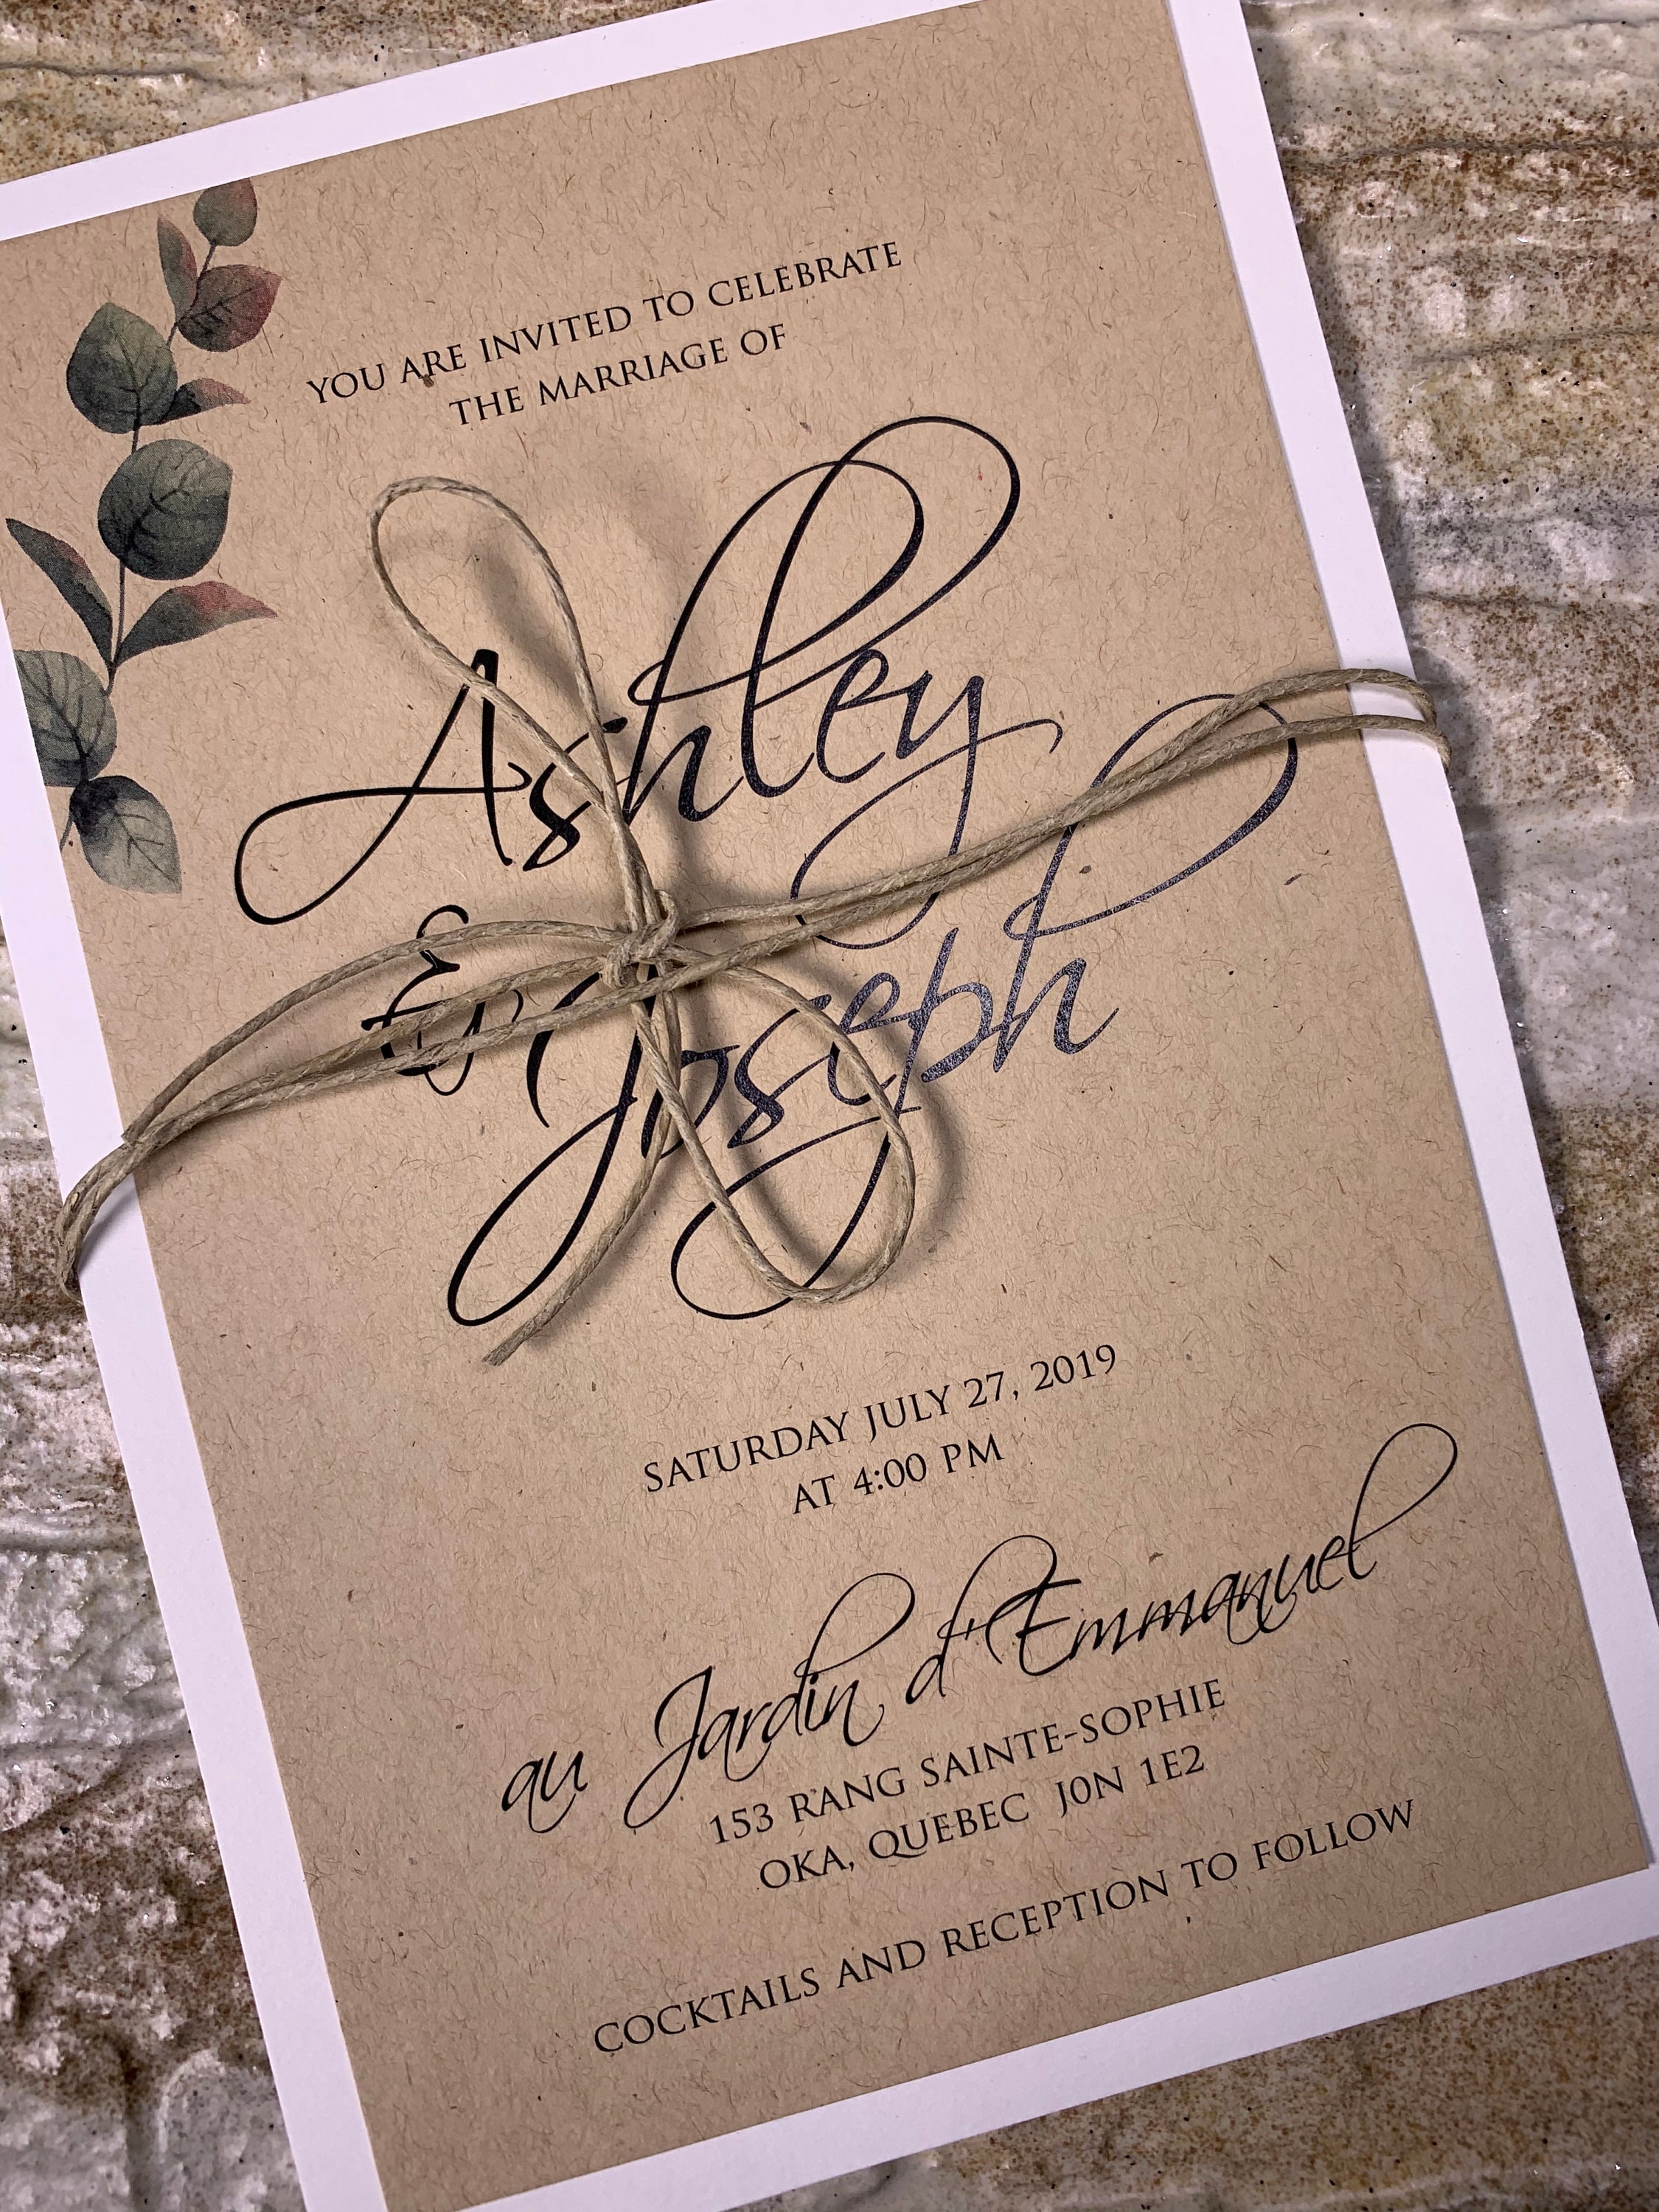 YOU ARE INVITED TO CELEBRATE
THE MARRIAGE OF
Ashley
& Joseph
SATURDAY JULY 27, 2019
AT 4:00 PM
au Jardin d'Emmanuel
153 RANG SAINTE-SOPHIE
OKA, QUEBEC J0N 1E2
COCKTAILS AND RECEPTION TO FOLLOW